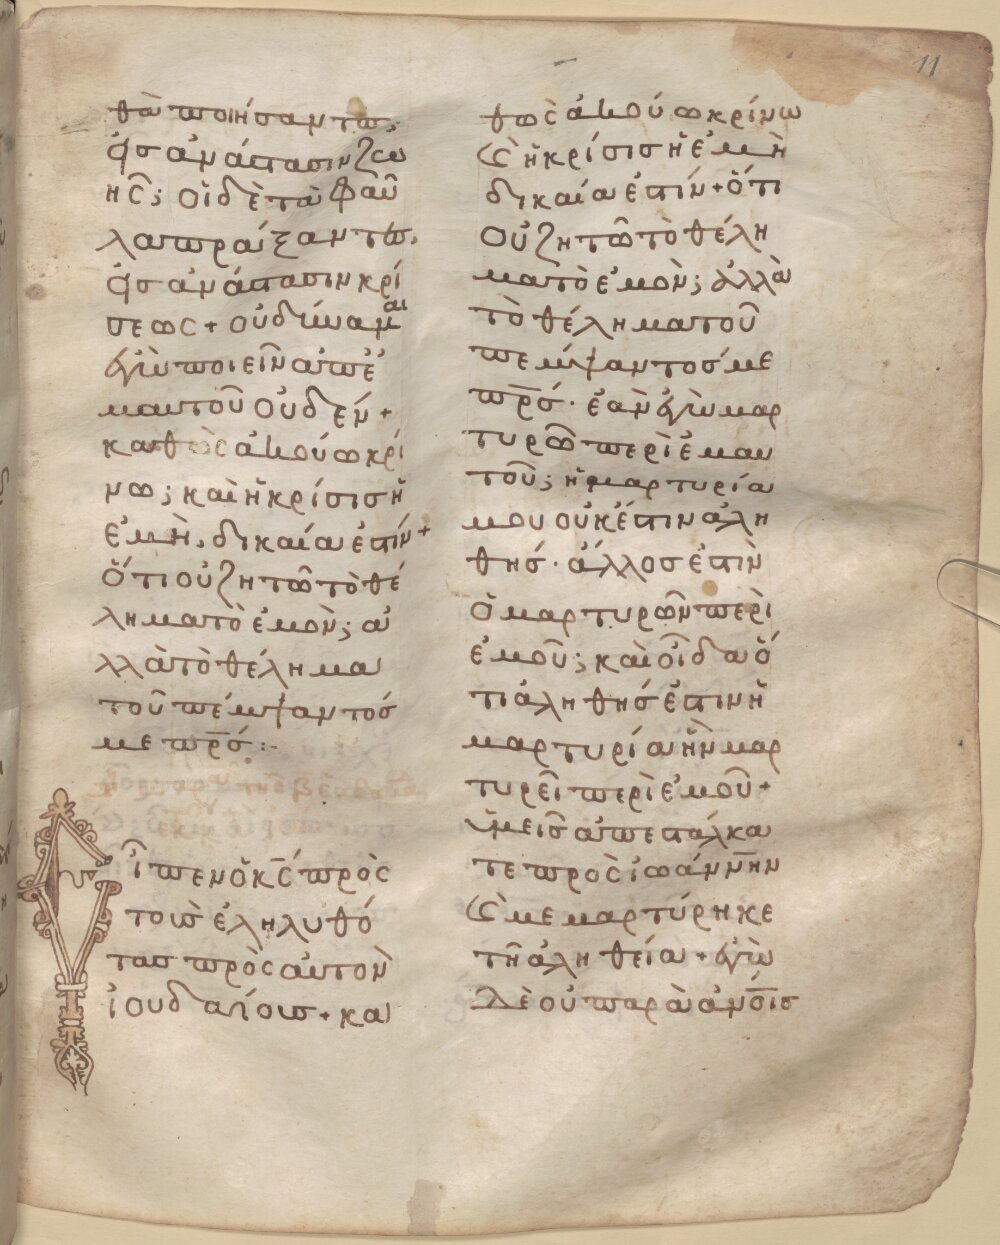 11
θὰ ποιήσαντες,
εἰσ ἀνάστασιν ζω
ῆς; οἱ δὲ τὰ φαῦ
λα πράξαντες,
εἰσ ἀνάστασιν κρί
σεως + οὐ δύναμαι
ἐγὼ ποιεῖν ἀπ' ἐ
μαυτοῦ οὐδέν +
καθὼς ἀκούω κρί
νω; καὶ ἡ κρίσισ ἡ
ἐμὴ, δικαία ἐστίν +
ὅτι οὐ ζητῶ τὸ θέ
λημα τὸ ἐμὸν; ἀ
λλὰ τὸ θέλημα
τοῦ πέμψαντόσ
με πρ̅σ́ :-
Εἶπεν ὁ κ̅ς πρὸς
τοὺσ ἐληλυθό
τασ πρὸς αὐτὸν
ἰουδαίουσ + κα
θὼς ἀκούω κρίνω
ϗ̀ ἡ κρίσισ ἡ ἐμὴ
δικαία ἐστίν + ὅτι
οὐ ζητῶ τὸ θέλη
μα τὸ ἐμὸν; ἀλλὰ
τὸ θέλημα τοῦ
πέμψαντοσ με
πρ̅σ́ · ἐὰν ἐγὼ μαρ
τυρῶ περὶ ἐμαυ
τοῦ; ἡ μαρτυρία
μου οὐκ ἔστιν ἀλη
θήσ · ἄλλοσ ἐστὶν
ὁ μαρτυρῶν περὶ
ἐμοῦ; καὶ οἶδα ὅ
τι ἀληθήσ ἐστιν ἡ
μαρτυρία ἣν μαρ
τυρεῖ περὶ ἐμοῦ +
ὑμεῖσ ἀπεστάλκα
τε πρὸς ἰωάννην
ϗ̀ μεμαρτύρηκε
τῆ ἀληθεία + ἐγὼ
δὲ οὐ παρὰ ἀν̅ο̅υσ